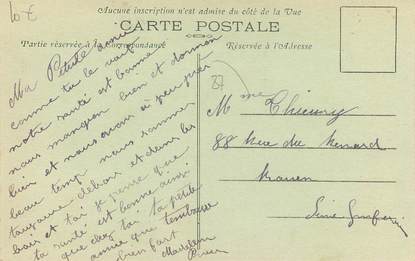 10 €
Aucune inscription n'est admise du côté de la Vue
CARTE POSTALE
Partie réservée à la Correspondance
Réservée à l'Adresse
Ma Petite amie
comme tu le vois
notre santé est bonne
nous mangeon bien et dormon
bien et nous avons à peu près
beau temp nous sommes
toujours dehors et dans les
bois et toi je pense que
ta santé est bonne ainsi
que chez toi ta petite
amie que t'embrasse
bien fort
Madeleine
87
Mme Thieury
88 Rue du Renard
Rouen
Seine Inférie